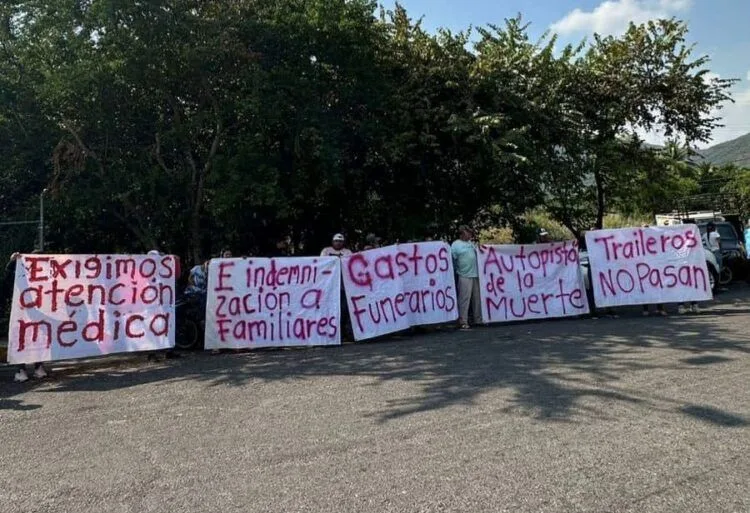 Exigimos
atención
médica
E indemni-
zación a
familiares
Gastos
Funerarios
Autopista
de la
Muerte
Traileros
NO Pasan